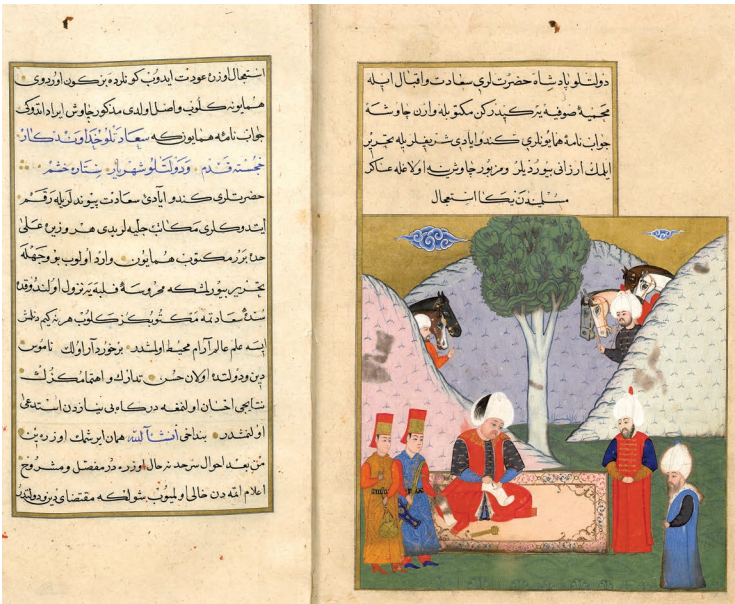 دولتلو پادشاه حضرتلری سعادت واقبال ایله
محمیهٔ صوفیه یه کیدرکن مکتوبله وارن چاوشه
جوابنامهٔ همایونلری کندو ایادی شریفلریله تحریر
ایلمك ارزانی بیوردیلر ومزبور چاوش ینه اولاغله عساکر
استعجال
استعجال اوزره عودت ایدوب بر کون اوردوی
همایونه کلوب واصل اولدی مذکور چاوش ایراد اتدوکی
جوابنامهٔ همایون که سعادتلو خداوندکار
خجسته قدم ودولتلو شهریار ستاره حشم
حضرتلری کندو ایادئ سعادت پیوندلریله رقم
ایتدوکلری مکاتب جلیه لریدی هر وزیره علی
حده برر مکتوب همایون وارد اولوب بو وجهله
تحریر بیورلمش که محروسهٔ فلبه یه نزول اولندوقده
سدهٔ سعادتمه مکتوبکز کلوب هر نه که دنلمش
ایسه علم عالم آرام محیط اولمشدر برخوردار اولك ناموس
دین ودولتده اولان حسن تدارك واهتمامکزك
نتایجی احسان اولنمغه درکاه بی نیازدن استدعا
اولنمشدر بنداخی انشاالله همان ایرشمك اوزره ین
من بعد احوال سرحد نه حال اوزره در مفصل ومشروح
اعلام ایتمه دن خالی اولمیوب شولکه مقتضای دین ودولتدر